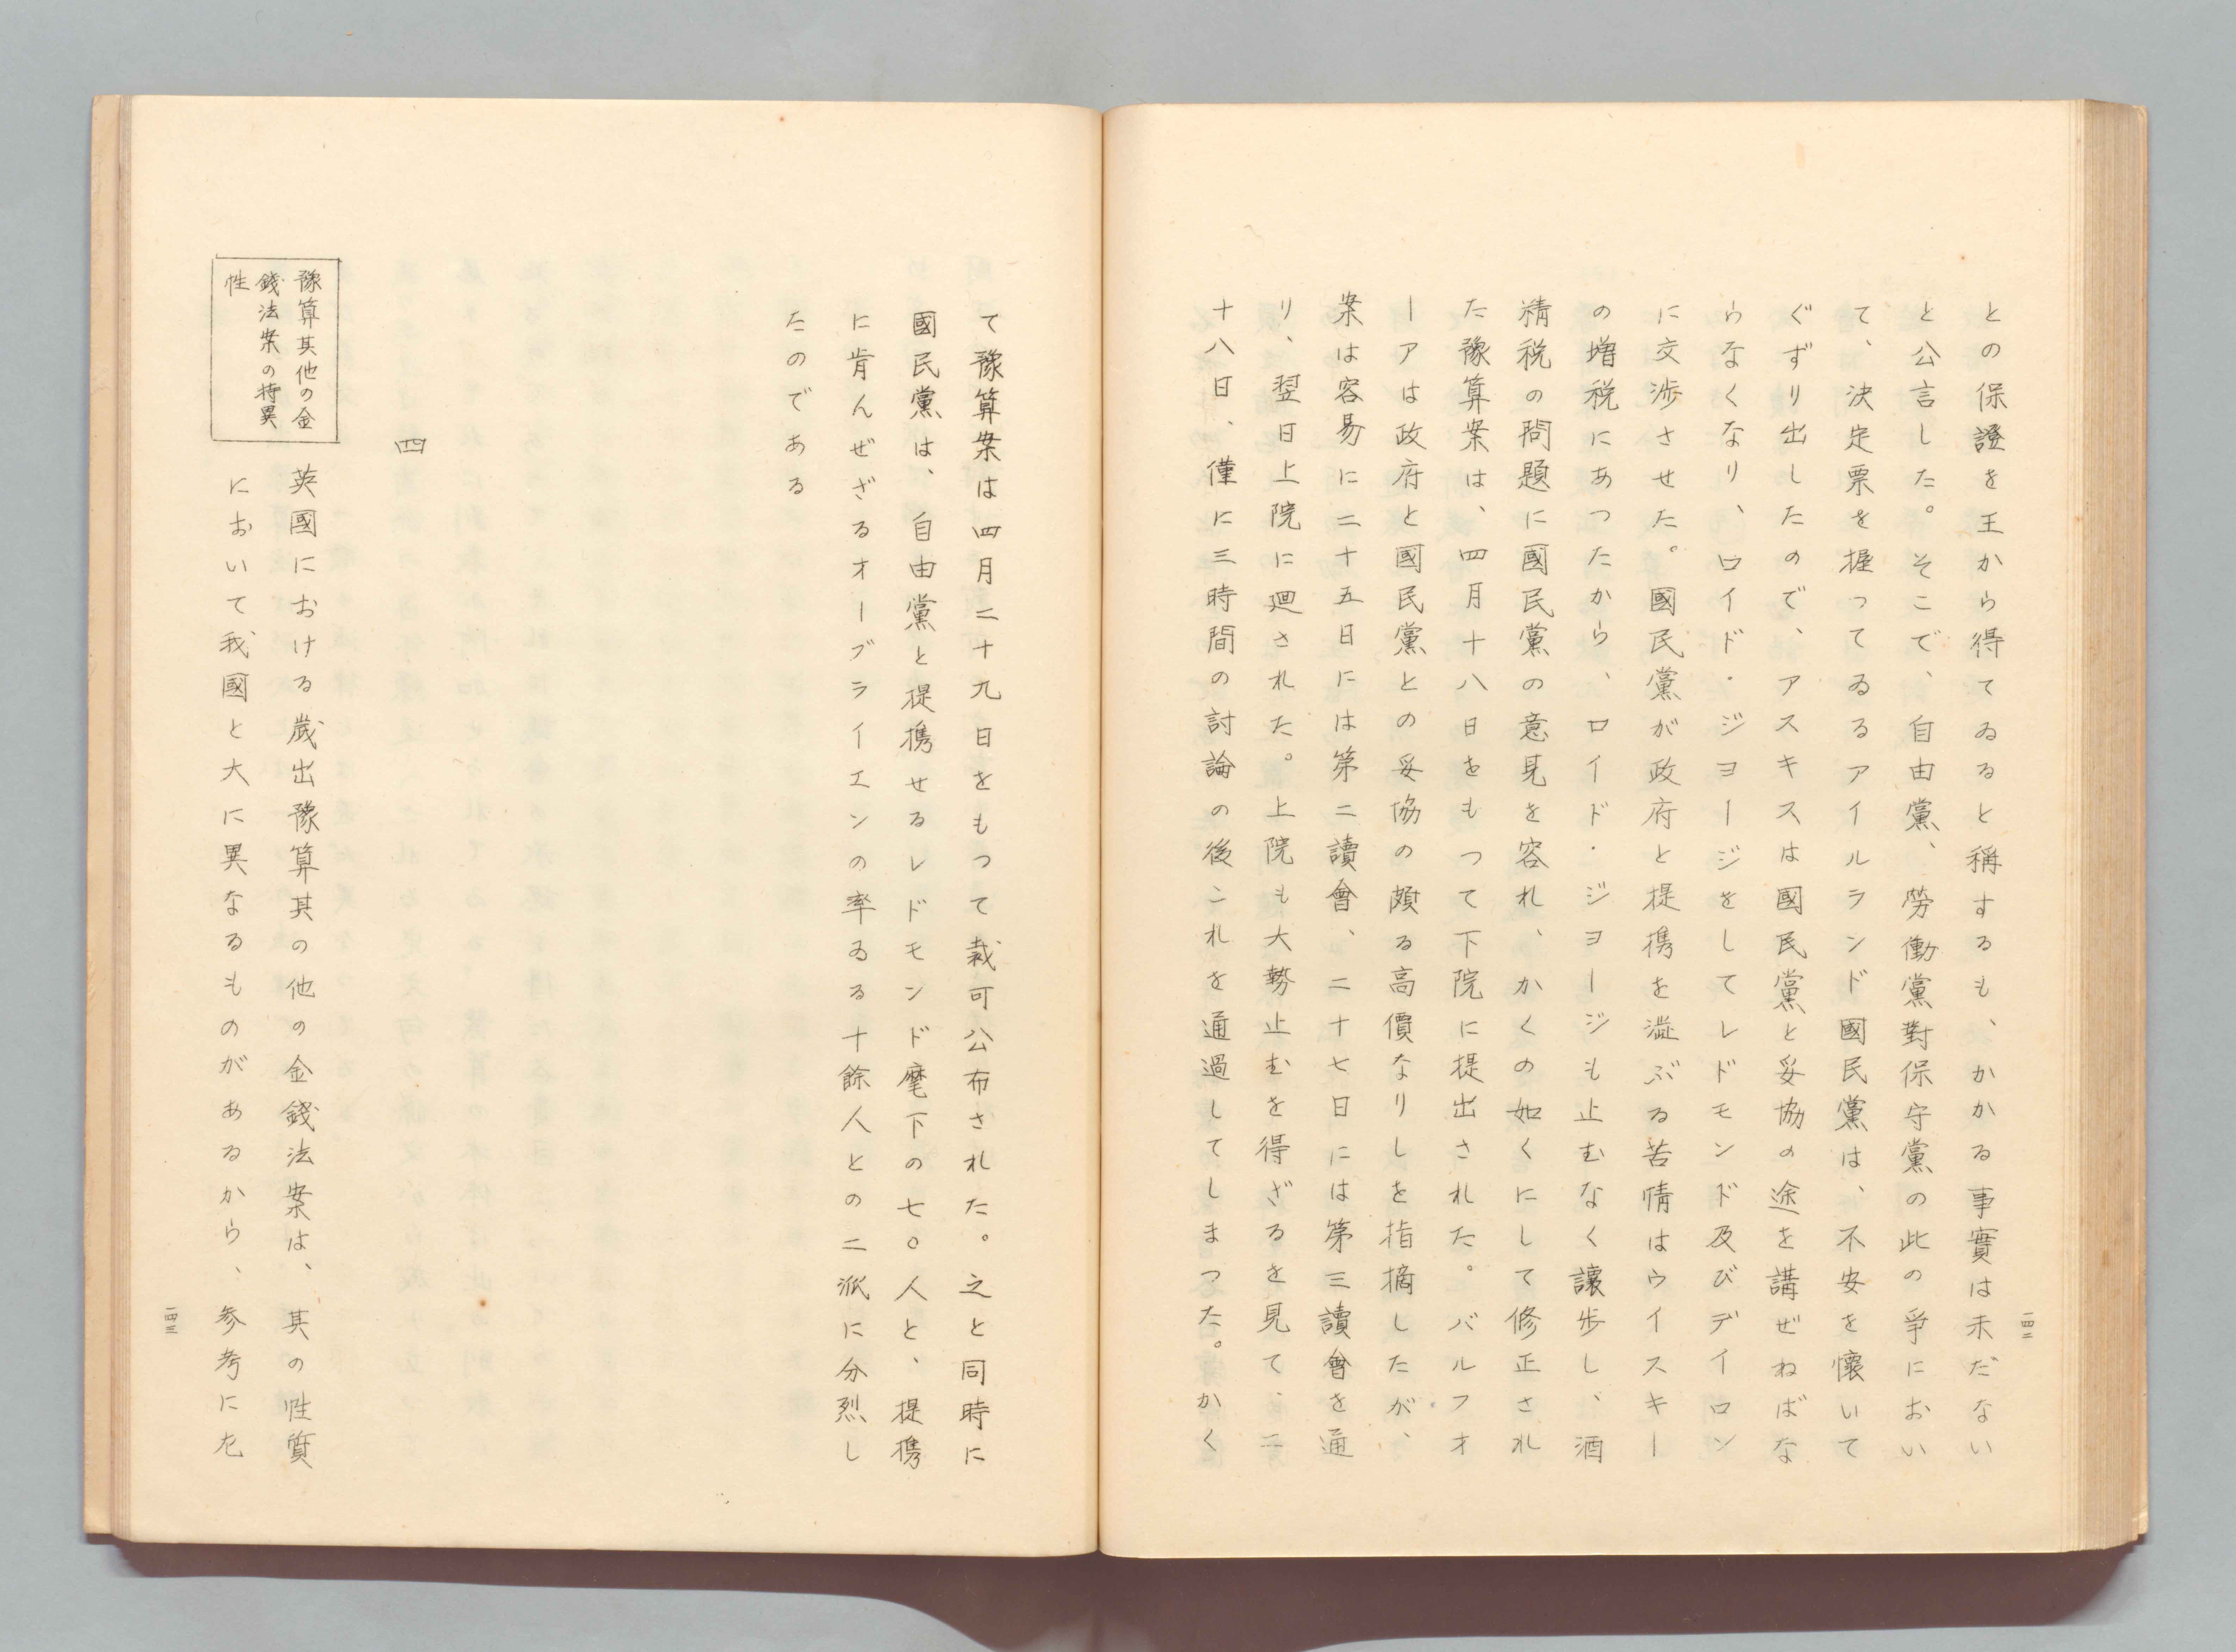 との保證を王から得てゐると稱するも、かかる事實は未だない
と公言した。そこで、自由黨、勞働黨對保守黨の此の爭におい
て、決定票を握ってゐるアイルランド國民黨は、不安を懷いて
ぐずり出したので、アスキスは國民黨と妥協の途を講ぜねばな
らなくなり、ロイド・ジヨージをしてレドモンド及びデイロン
に交渉させた。國民黨が政府と提携を澁ぶる苦情はウイスキー
の増税にあつたから、ロイド・ジヨージも止むなく讓歩し、酒
精税の問題に國民黨の意見を容れ、かくの如くにして修正され
た豫算案は、四月十八日をもつて下院に提出された。バルフオ
ーアは政府と國民黨との妥協の頗る高價なりしを指摘したが、
案は容易に二十五日には第二讀會、二十七日には第三讀會を通
り、翌日上院に廻された。上院も大勢止むを得ざるを見て、二
十八日、僅に三時間の討論の後これを通過してしまつた。かく
一四二
て豫算案は四月二十九日をもつて裁可公布された。之と同時に
國民黨は、自由黨と提携せるレドモンド麾下の七〇人と、提携
に肯んぜざるオーブライエンの率ゐる十餘人との二派に分烈し
たのである
四
豫算其他の金
錢法案の特異
性
英國における歲出豫算其の他の金錢法案は、其の性質
において我國と大に異なるものがあるから、参考にた
一四三